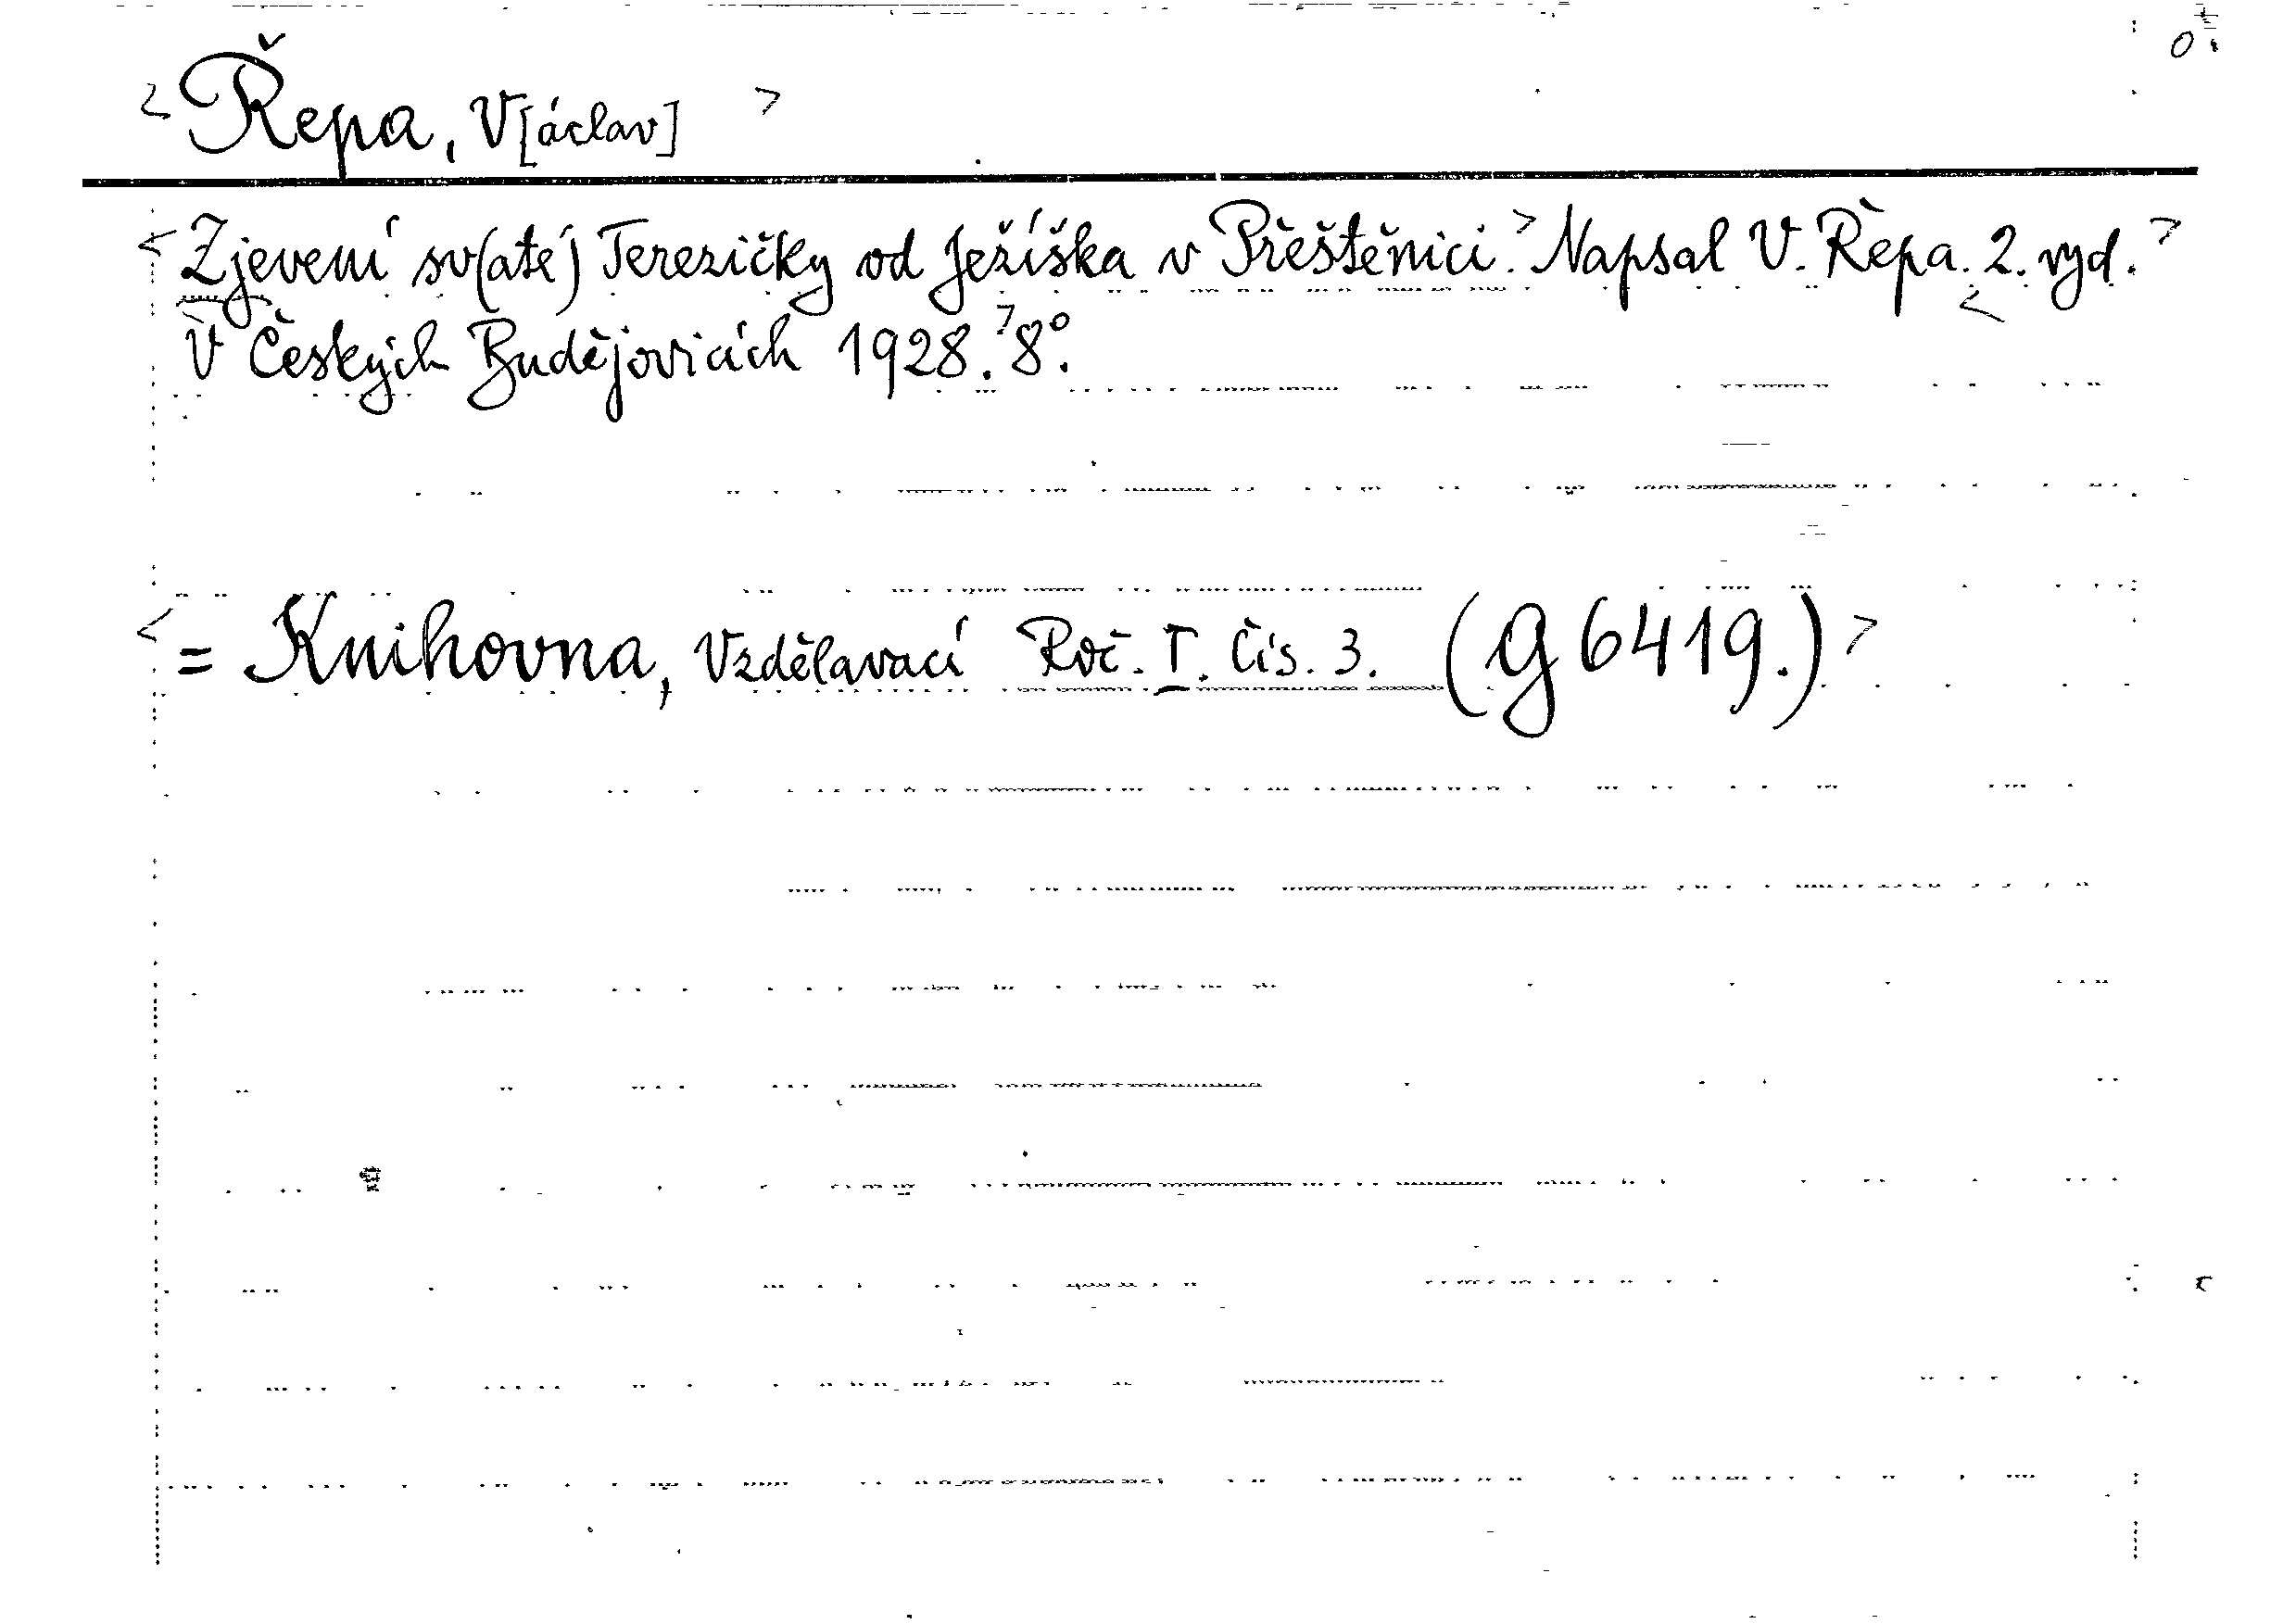 <Řepa, V[áclav]>
<Zjevení sv(até) Terezičky od Ježíška v Přeštěnici.> Napsal V. Řepa. <2. vyd.>
<V Českých Budějovicích 1928.> 8°.
<= Knihovna, Vzdělavací Roč. I. Čís. 3. (G 6419.)>